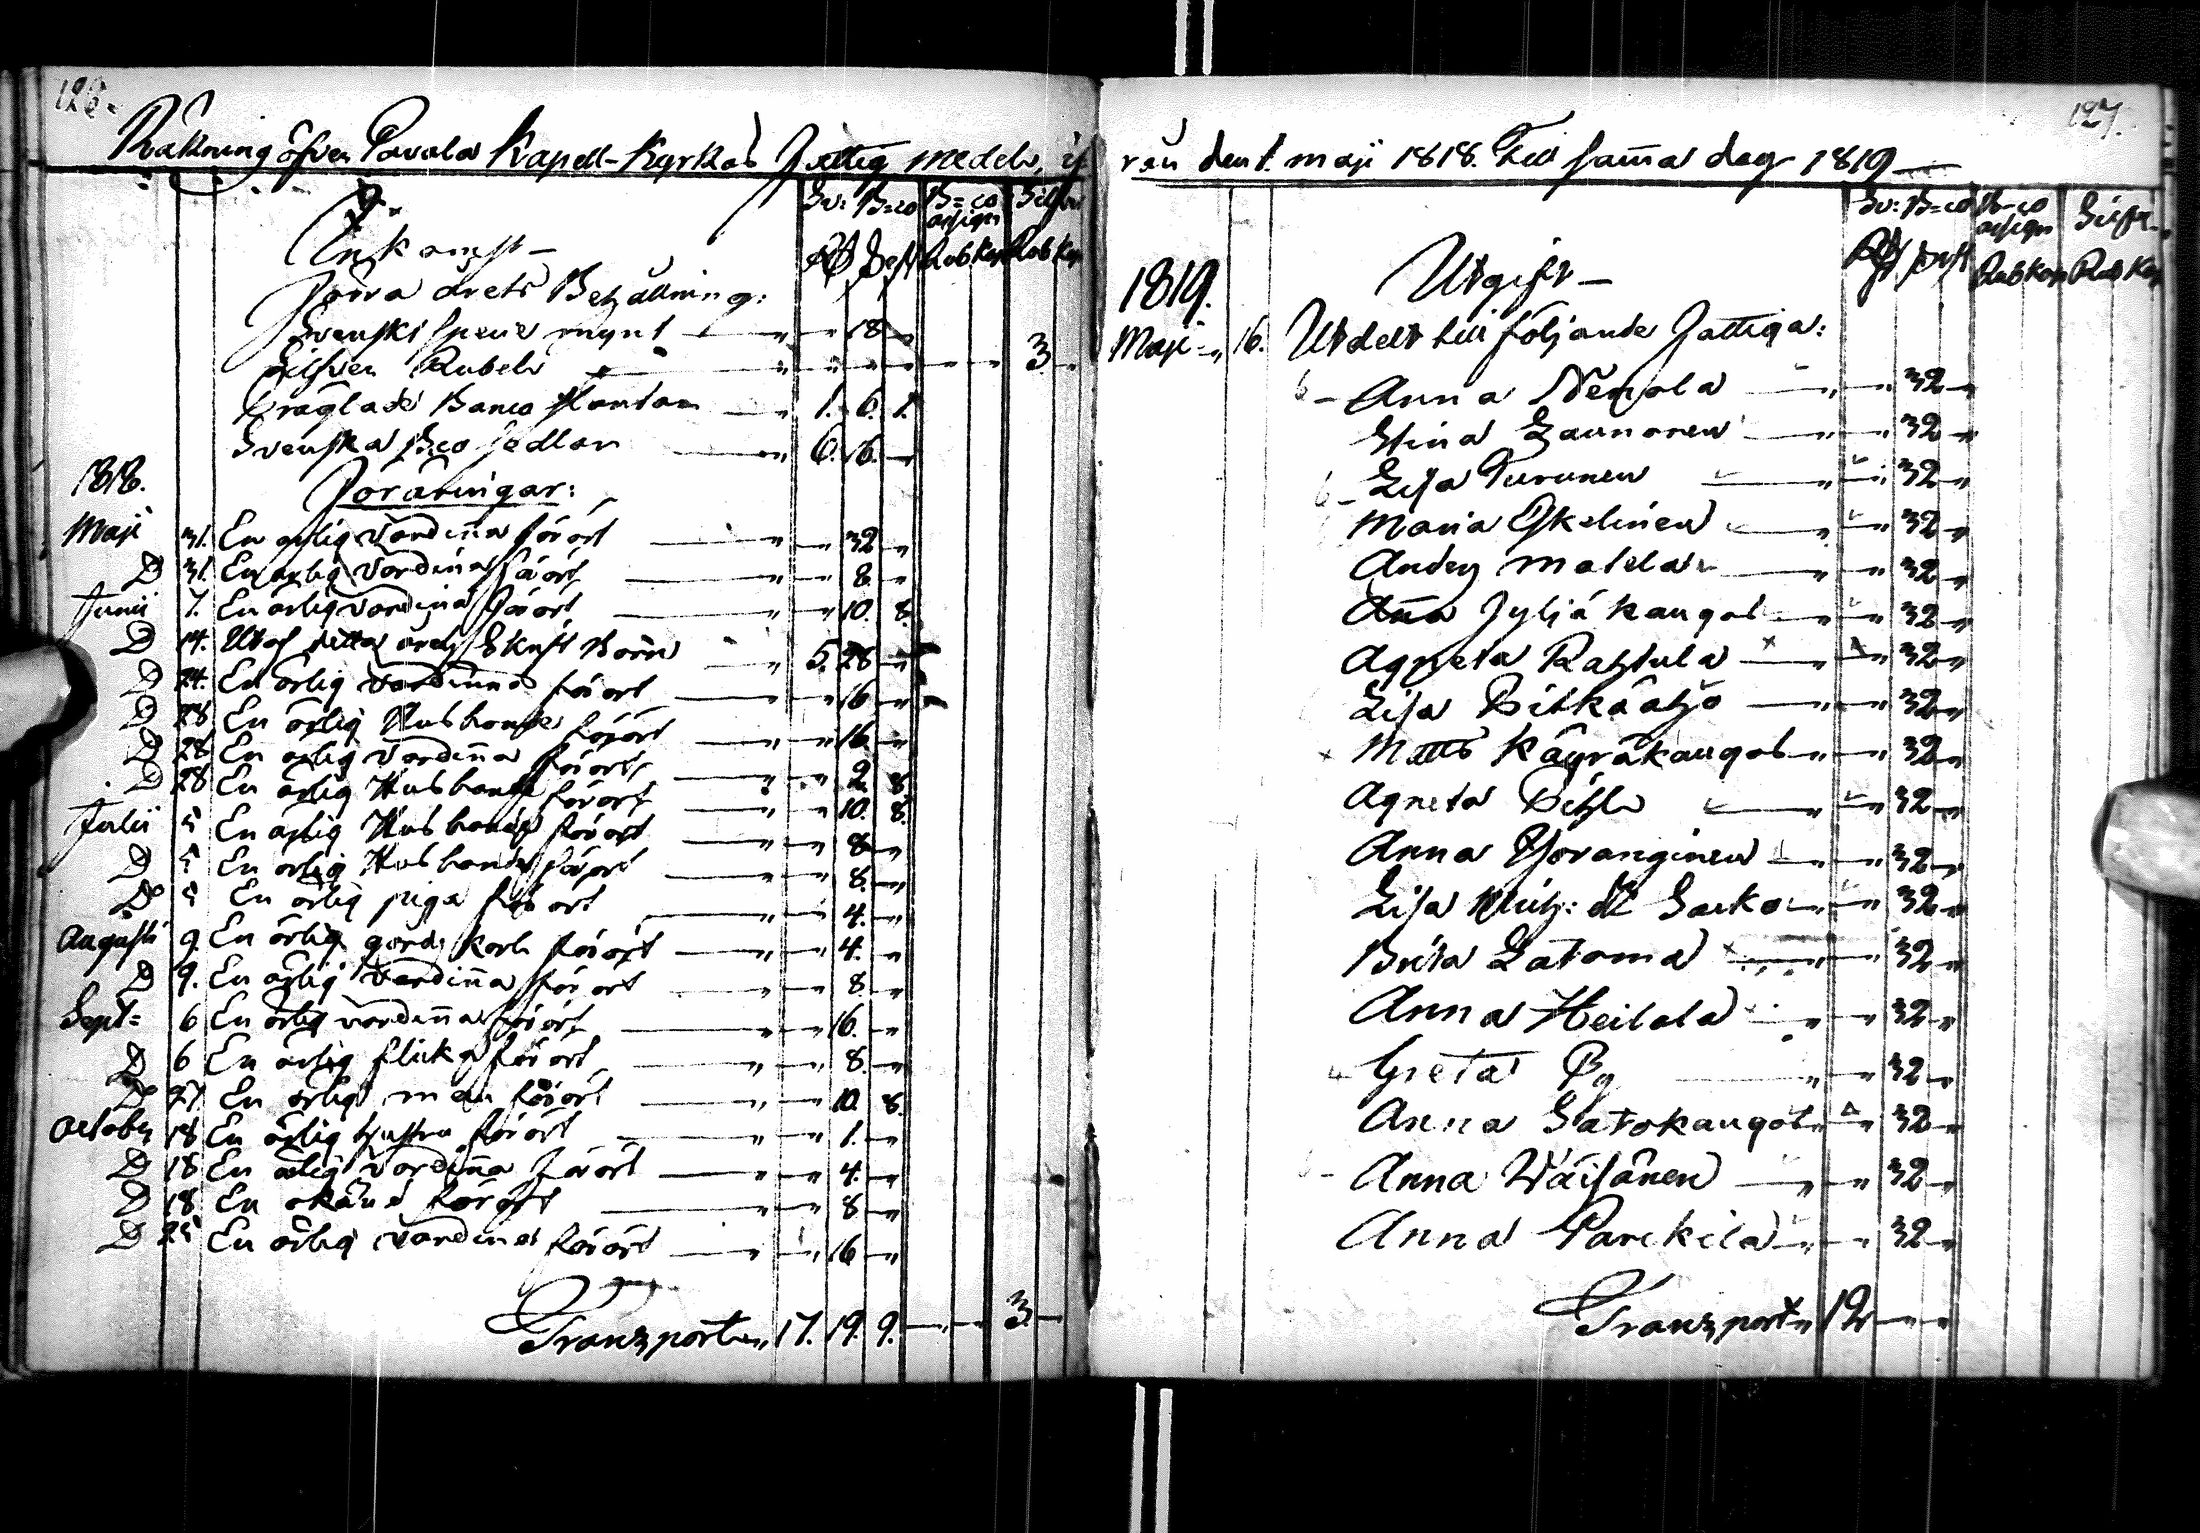 126.
Räkning öfver Pavola Kapell-Kyrkas Fattig medel,
Inkomst —
Förra årets Behållning:
Svenskt specie mynt — „ — 18 „
Silfver Rubel — „ „ „ „ — — 3 —
Präglade Banco slantar — 1. 6. 1.
Svenska B:co sedlar — „ 6. 16. „
1818.
Föräringar:
Maji 31. En ärlig Vördinna förärt — „ — 32 „
D 31. En ärlig Vördinna förärt — „ — 8 „
Junii 7. En ärlig Vördinna förärt — „ — 10. 8.
D 14. Utaf detta årets Skrift Börn — 5. 28 „
D 24. En ärlig Vördinna förärt — „ — 16 „
D 28 En ärlig Husbonde förärt — „ — 16 „
D 28 En ärlig Vördinna förärt — „ „ 2 8.
D 28 En ärlig Husbonde förärt — „ — 10. 8.
Julii 5 En ärlig Husbonde förärt — „ — 8 „
D 5 En ärlig Husbonde förärt — „ — 8. „
D 5 En ärlig piga förärt — „ — 4. „
Augusti 9 En ärlig gords karl förärt — „ — 4. „
D 9. En ärlig Vardinna förärt — „ — 8. „
Sept= 6 En ärlig vardinna förärt — „ — 16. „
D 6 En ärlig flicka förärt — „ — 8. „
D 27. En ärlig man förärt — „ — 10. 8.
October 18 En ärlig hustru förärt — „ — 1. „
D 18 En ärlig Vördinna förärt — „ — 4. „
D 18. En okänd förärt — „ — 8 „
D 25 En ärlig vardinna förärt — „ — 16 „
Transport „ 17. 19. 9. — — 3. —
127.
rån den 1. maji 1818. Till samma dag 1819 —
Sv: B=co B=co assign Silfr
Rub Kop Rub Kop
1819. Utgift —
Maji „ 16. Utdelt till följande Fattiga:
6 — Anna Nemola — „ — 32 „
Stina Launonen — „ — 32 „
6 — Lisa Turunen — „ — 32 „
Maria Eskelinen — „ — 32 „
Anders Matela — „ — 32 „
Anna Jyljäkangas — „ — 32 „
Agneta Ratzula — „ — 32 „
Lisa Pitkäatzo — „ — 32 „
Matts Käyräkangas — „ — 32 „
Agneta Pitzle — „ — 32 „
Anna Horanginen — „ — 32 „
Lisa dr Sarko — „ — 32 „
Brita Latoma — „ — 32 „
Anna Heilala — „ — 32 „
Greta Py — „ — 32 „
Anna Satokangas „ — 32 „
Anna Wäisänen — „ — 32 „
Anna Parckila — „ — 32 „
Transport „ 12 — „